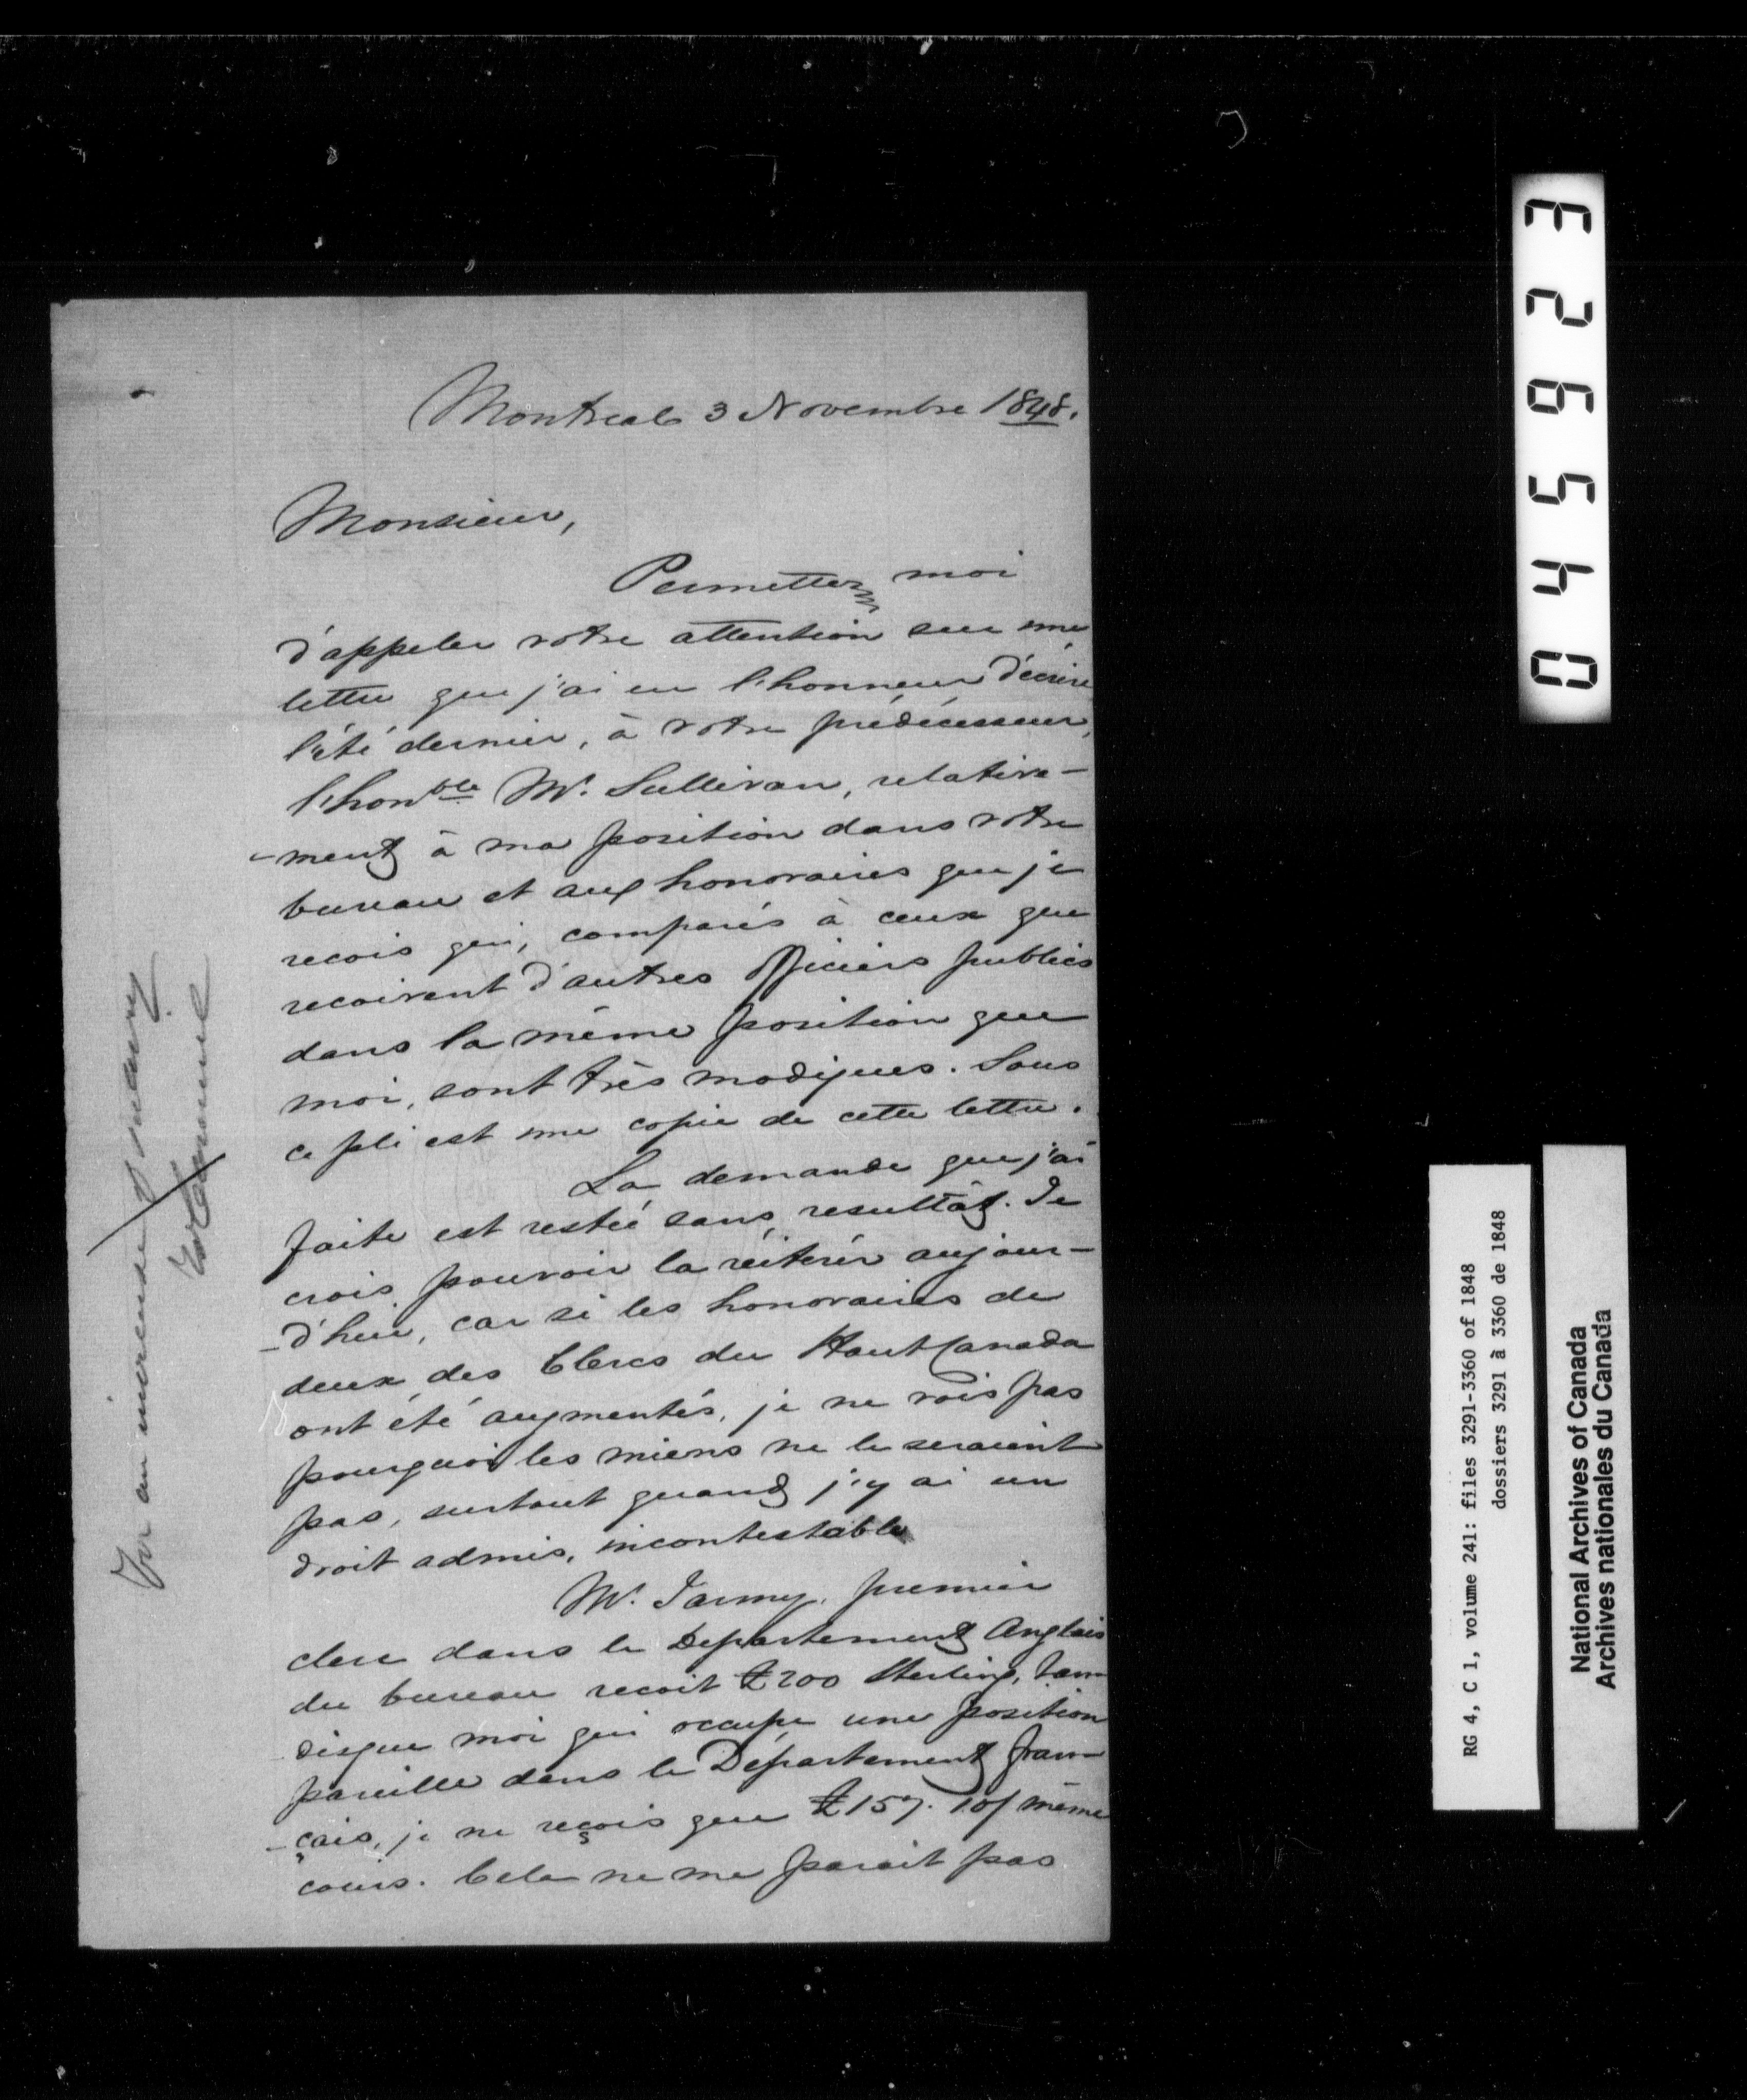 Montreal 3 Novembre 1848.
Monsieur,
Permettez moi
d'appeler votre attention sur une
lettre que j'ai eu l'honneur d'écrire
l'été dernier, à votre prédécesseur,
l'hon^ble M^r. Sullivan, relative-
-ment à ma position dans votre
bureau et aux honoraires que je
recois qui, comparés à ceux que
recoivent d'autres officiers publics
dans la même position que
moi, sont très modiques. Sous
ce pli est une copie de cette lettre.
La demande que j'ai
faite est restée sans resultât. Je
crois pouvoir la réiterér aujour-
-d'hui, car si les honoraires de
deux des Clercs du Haut Canada
ont été augmentés, je ne vois pas
pourquoi les miens ne le seraient
pas, surtout quand j'y ai un
droit admis, incontestable
M^r. Jarmy, premier
clerc dans le Departement Anglais
du bureau recoit £200 Sterling, tan-
disque moi qui occupe une position
pareille dans le Département fran-
-çais, je ne reçois que £157. 10/ même
cours. Cela ne me parait pas
For an increase of salary
04562 3
RG 4, C 1, volume 241: files 3291-3360 of 1848
dossiers 3291 à 3360 de 1848
National Archives of Canada
Archives nationales du Canada